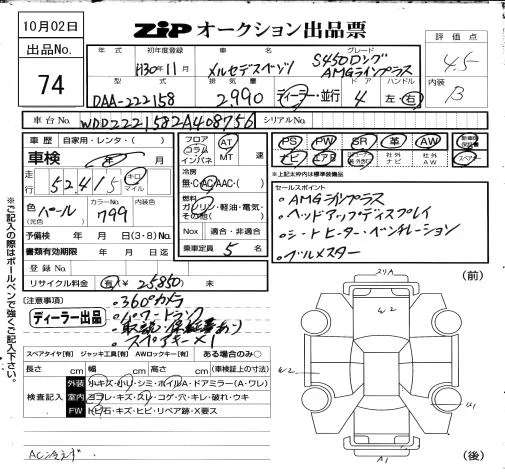 10月02日
ZIP オークション出品票
出品No.
74
年式
初年度登録
車名
グレード
H30年11月
メルセデスベンツ
S450ロング
AMGラインプラス
評価点
4.5
型式
排気量
ドア
ハンドル
DAA-222158
2,990
ディーラー・並行
4
左・右
内装
B
車台No.
WDD2221582A408756
シリアルNo.
車歴
自家用・レンタ・( )
車検
年 月
走行
52,415
キロ
マイル
色
(元色)
パール
カラーNo.
799
内装色
予備検 年 月 日(3・8)No.
書類有効期限 年 月 日
登録No.
リサイクル料金
有 ¥ 25,850 未
フロア
コラム
インパネ
AT
MT
速
冷房
無・C・AC・AAC・( )
燃料
ガソリン・軽油・電気・
その他( )
Nox
適合・非適合
乗車定員 5 名
PS
PW
SR
革
AW
新車時保証書
ナビ
エアB
社外ナビ
社外AW
スペアキー
※上記太枠内は標準装備品
セールスポイント
・AMGラインプラス
・ヘッドアップディスプレイ
・シートヒーター・ベンチレーション
・ブルメスター
(注意事項)
ディーラー出品
・360°カメラ
・パワートランク
・取説・保証書あり
・スペアキー×1
スペアタイヤ[有] ジャッキ工具[有] AWロックキー[有] ある場合のみ○
長さ cm 幅 cm 高さ cm (車検証上の寸法)
検査記入
外装
小キズ・小ヘコ・シミ・ホイルA・ドアミラー(A・ワレ)
室内
ヨゴレ・キズ・スレ・コゲ・穴・キレ・破れ・ウキ
FW
トビ石・キズ・ヒビ・リペア跡・X要ス
AC冷えず
(前)
(後)
W2
W2
U1
A1
※ご記入の際はボールペンで強くご記入下さい。